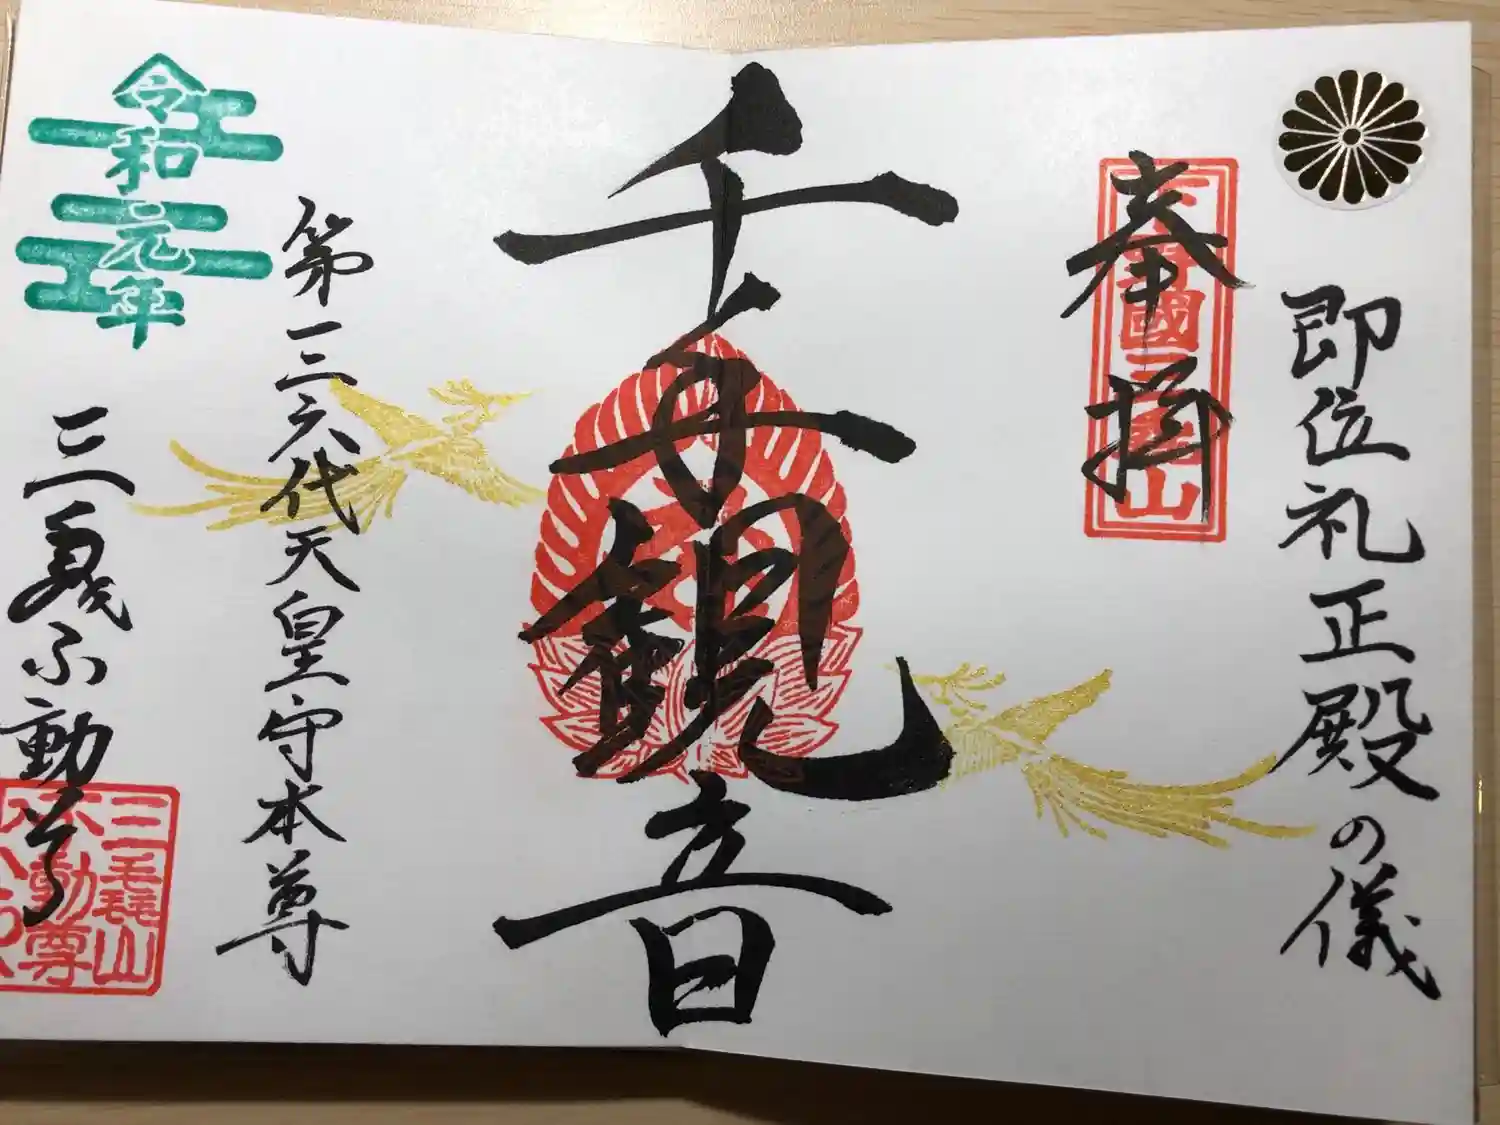 即位礼正殿の儀
奉拝
下野國三毳山
千手観音
第一二六代天皇守本尊
令和元年
三毳不動尊
三毳山
不動尊